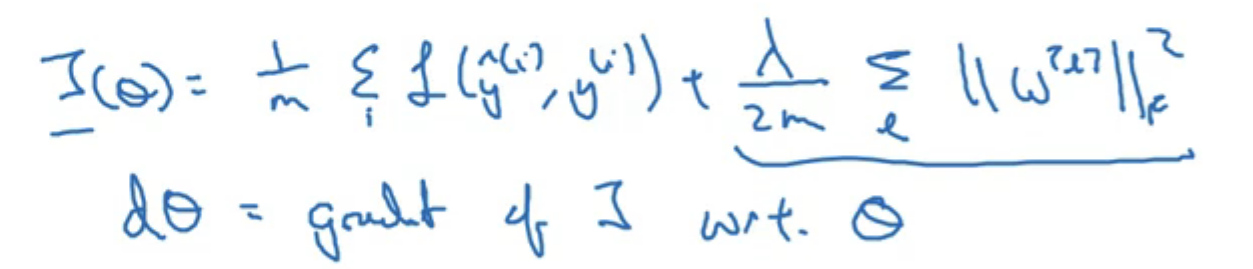 J(θ) = 1/m Σ_i L(ŷ^(i), y^(i)) + λ/2m Σ_l ||w^[l]||_F^2
dθ = gradient of J w.r.t. θ